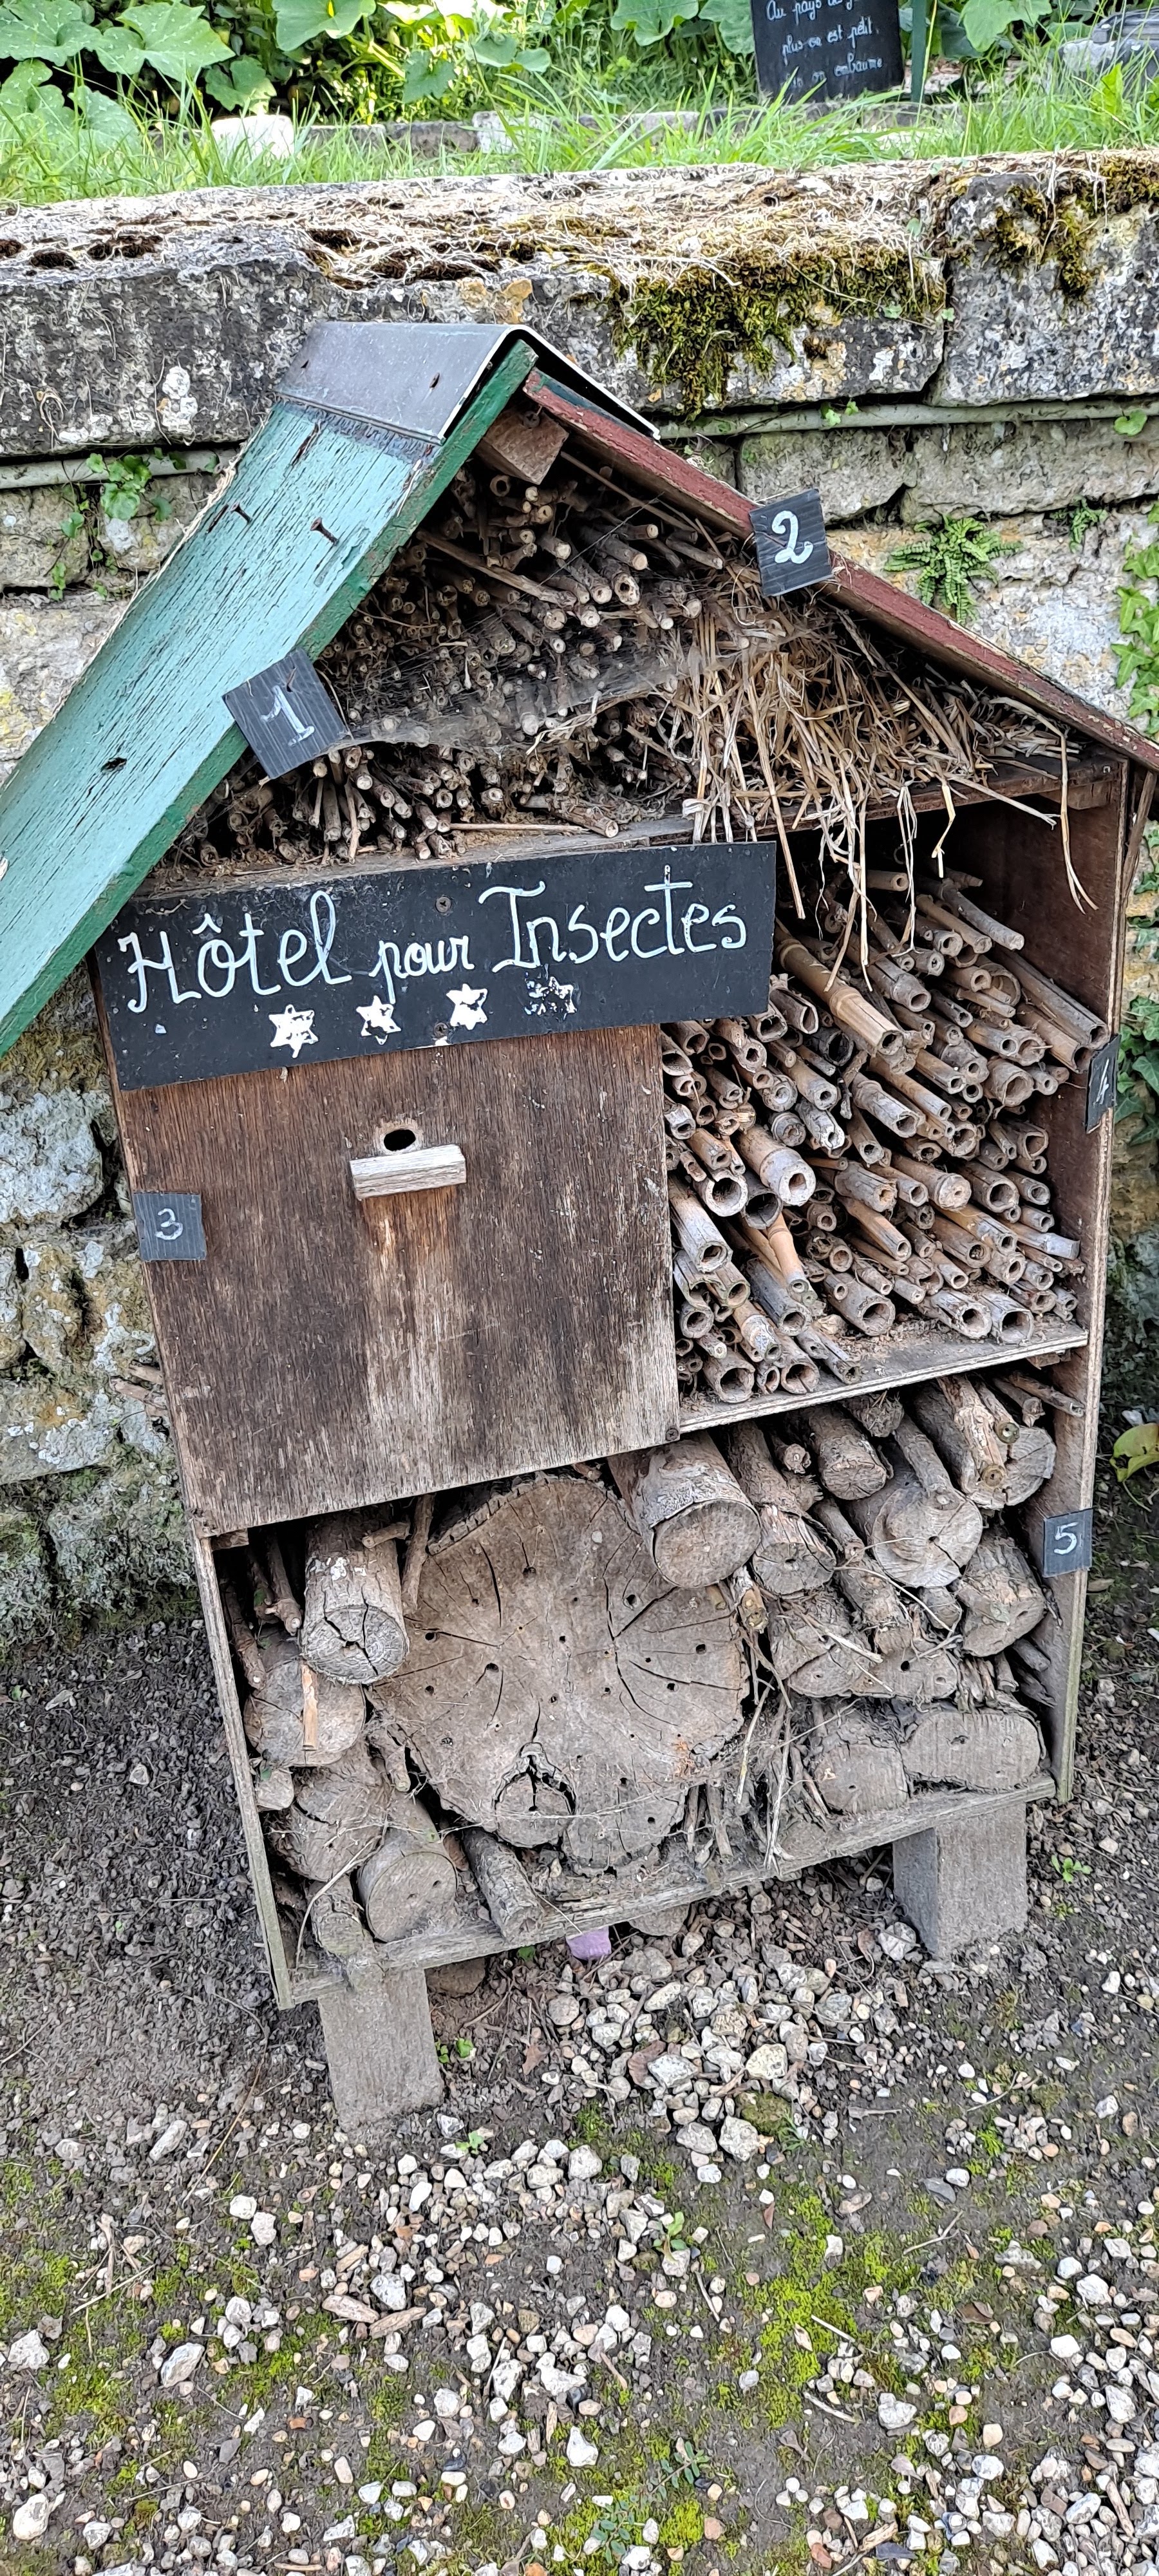 Au pays de
plus on est petit
on embaume
2
1
Hôtel pour Insectes
4
3
5